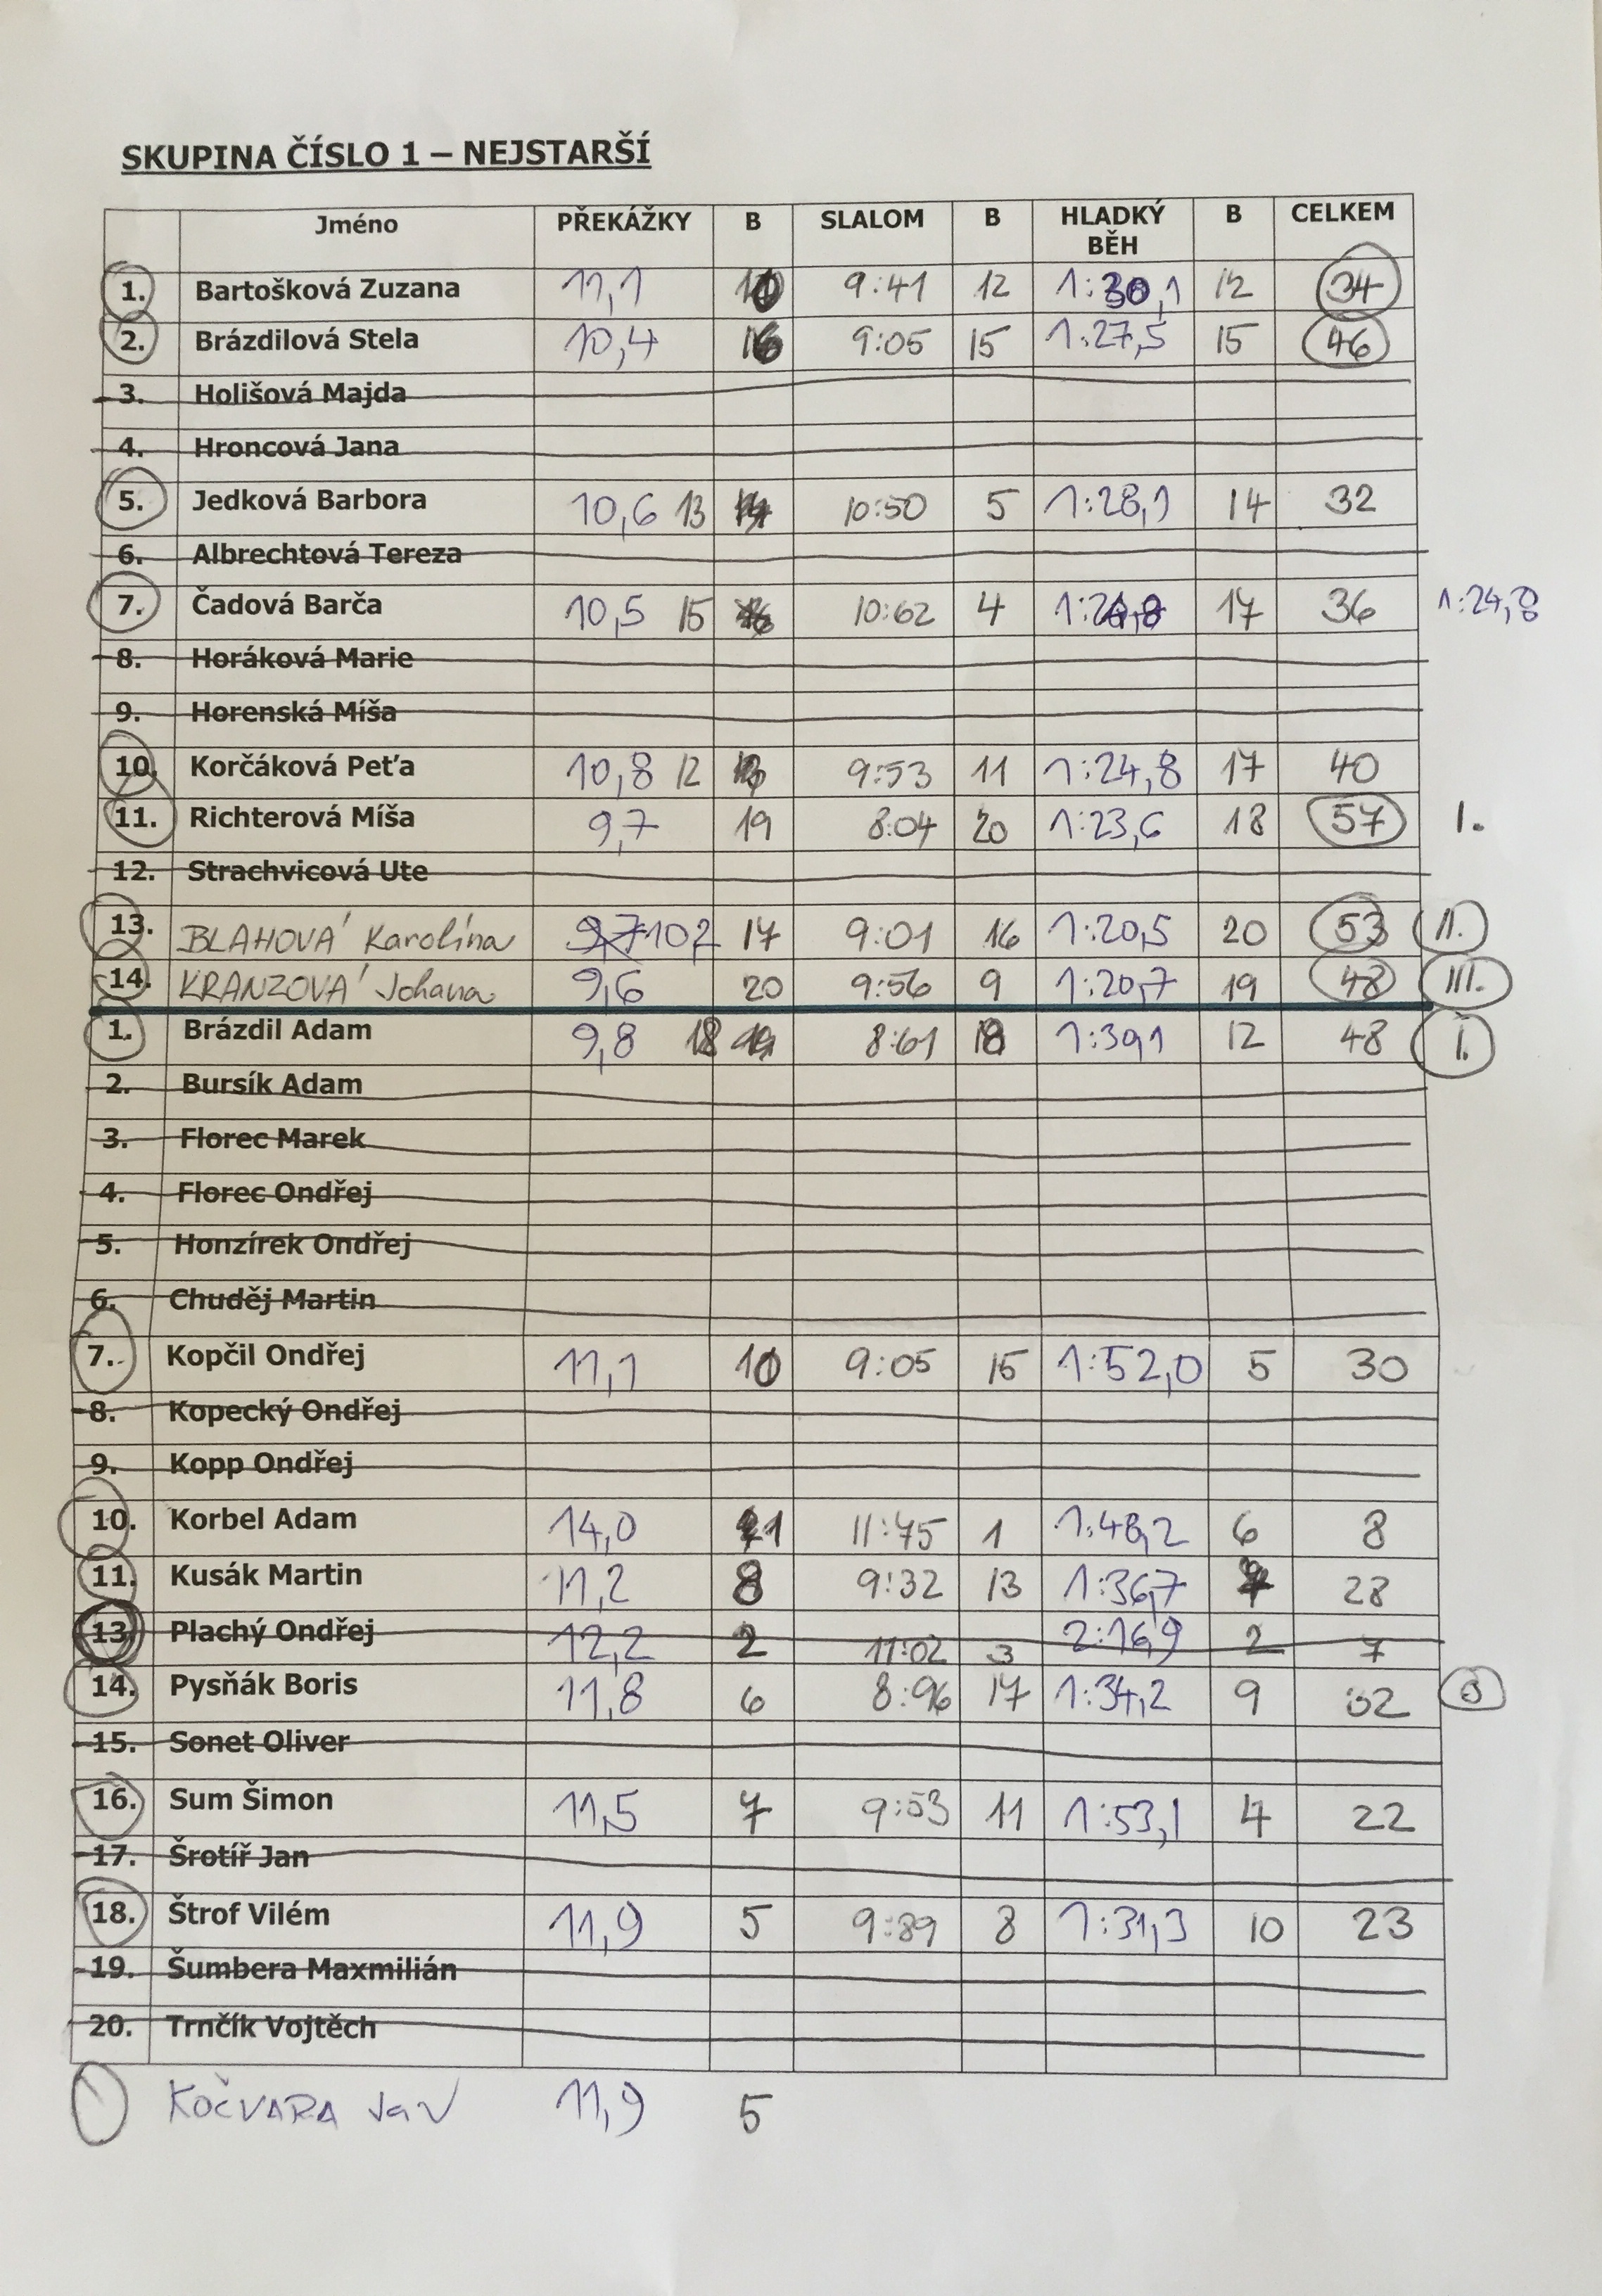 SKUPINA ČÍSLO 1 – NEJSTARŠÍ
Jméno PŘEKÁŽKY B SLALOM B HLADKÝ BĚH B CELKEM
1. Bartošková Zuzana 11,1 10 9:41 12 1:30,1 12 34
2. Brázdilová Stela 10,4 16 9:05 15 1:27,5 15 46
3. Holišová Majda
4. Hroncová Jana
5. Jedková Barbora 10,6 13 10:50 5 1:28,1 14 32
6. Albrechtová Tereza
7. Čadová Barča 10,5 15 10:62 4 1:24,8 17 36 1:24,8
8. Horáková Marie
9. Horenská Míša
10. Korčáková Peťa 10,8 12 9:53 11 1:24,8 17 40
11. Richterová Míša 9,7 19 8:04 20 1:23,6 18 57 I.
12. Strachvicová Ute
13. BLAHOVÁ Karolína 9,7 10 2 17 9:01 16 1:20,5 20 53 II.
14. KRANZOVÁ Johana 9,6 20 9:56 9 1:20,7 19 48 III.
1. Brázdil Adam 9,8 18 8:61 18 1:30,1 12 48 I.
2. Bursík Adam
3. Florec Marek
4. Florec Ondřej
5. Honzírek Ondřej
6. Chuděj Martin
7. Kopčil Ondřej 11,1 10 9:05 15 1:52,0 5 30
8. Kopecký Ondřej
9. Kopp Ondřej
10. Korbel Adam 14,0 1 11:75 1 1:48,2 6 8
11. Kusák Martin 11,2 8 9:32 13 1:36,7 7 28
13. Plachý Ondřej 12,2 2 11:02 3 2:16,9 2 7
14. Pysňák Boris 11,8 6 8:96 17 1:34,2 9 32
15. Sonet Oliver
16. Sum Šimon 11,5 7 9:53 11 1:53,1 4 22
17. Šrotíř Jan
18. Štrof Vilém 11,9 5 9:89 8 1:31,3 10 23
19. Šumbera Maxmilián
20. Trnčík Vojtěch
KOČVARA Jan 11,9 5